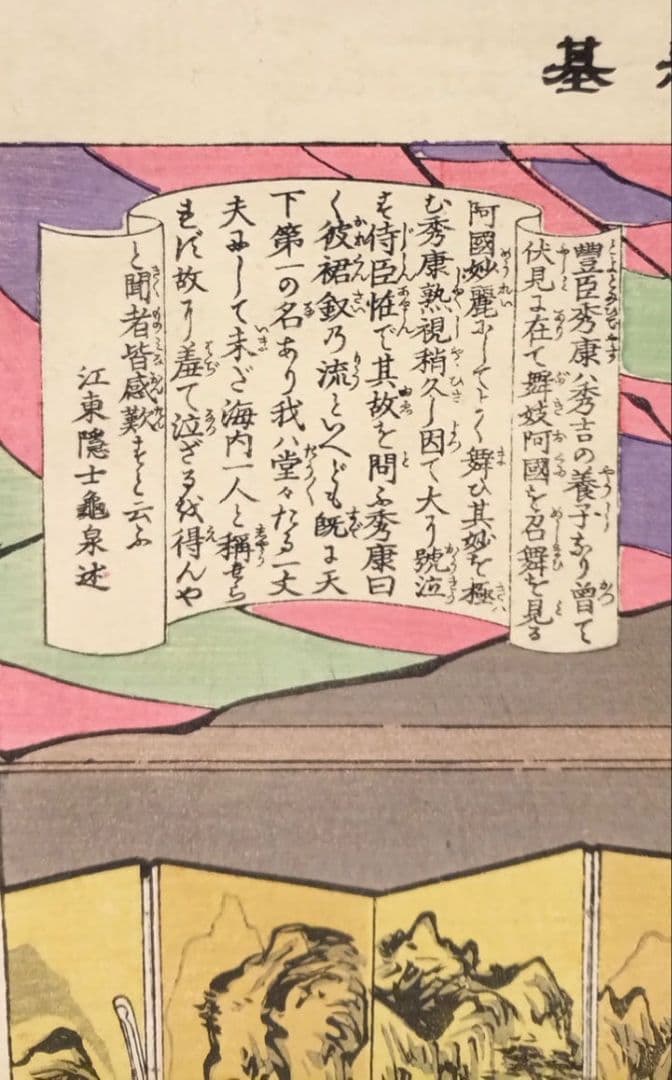 基
豐臣秀康ハ秀吉の養子なり曾て
伏見に在て舞妓阿國を召舞を見る
阿國妙麗にしてよく舞ひ其妙を極
む秀康熟視稍久し因て大に號泣
す侍臣恠で其故を問ふ秀康曰
く彼裙釵乃流といへども既に天
下第一の名あり我ハ堂々たる一丈
夫にして未ざ海内一人と稱せら
れず故に羞て泣ざるを得んや
と聞者皆感歎すと云ふ
江東隠士龜泉述